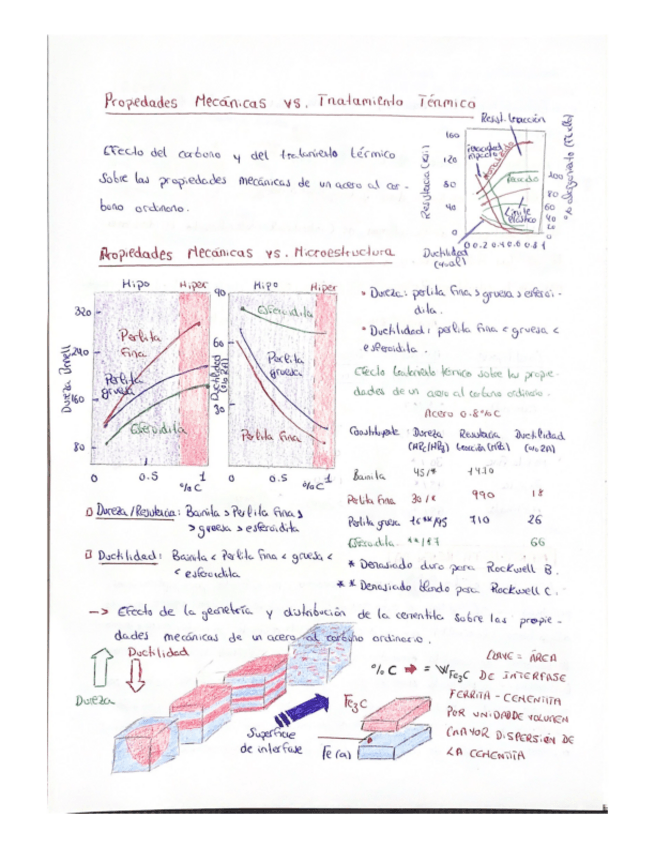 Propiedades Mecánicas vs. Tratamiento Térmico
Resist. tracción
Efecto del carbono y del tratamiento térmico
sobre las propiedades mecánicas de un acero al car-
bono ordinario.
Resistencia (Ksi)
160
120
80
40
0
Recocido
Límite
elástico
100
80
60
40
20
0
0 0.2 0.4 0.6 0.8 1
Ductilidad
(%al)
Propiedades Mecánicas vs. Microestructura
Hipo Hiper
320
240
160
80
Dureza Brinell
Perlita
Fina
Perlita
gruesa
Esferoidita
0 0.5 1
%C
Hipo Hiper
90
60
30
0
Ductilidad
(%RA)
Esferoidita
Perlita
gruesa
Perlita Fina
0 0.5 1
%C
• Dureza: perlita fina > gruesa > esferoi-
dita.
• Ductilidad: perlita fina < gruesa <
esferoidita.
Efecto tratamiento térmico sobre las propie-
dades de un acero al carbono ordinario.
Acero 0.8%C
Constituyente Dureza Resistencia Ductilidad
(HRc/HRB) tracción (MPa) (%RA)
Bainita 45/* 1470
Perlita Fina 30/* 990 18
Perlita gruesa 16**/95 710 26
Esferoidita **/87 66
* Demasiado duro para Rockwell B.
** Demasiado blando para Rockwell C.
Dureza/Resistencia: Bainita > Perlita Fina >
> gruesa > esferoidita
Ductilidad: Bainita < Perlita fina < gruesa <
< esferoidita
-> Efecto de la geometría y distribución de la cementita sobre las propie-
dades mecánicas de un acero al carbono ordinario.
Ductilidad
Dureza
Superficie
de interfase
%C → = WFe3C
Fe3C
Fe(α)
CLAVE = ÁREA
DE INTERFASE
FERRITA - CEMENTITA
POR UNIDAD DE VOLUMEN
(MAYOR DISPERSIÓN DE
LA CEMENTITA